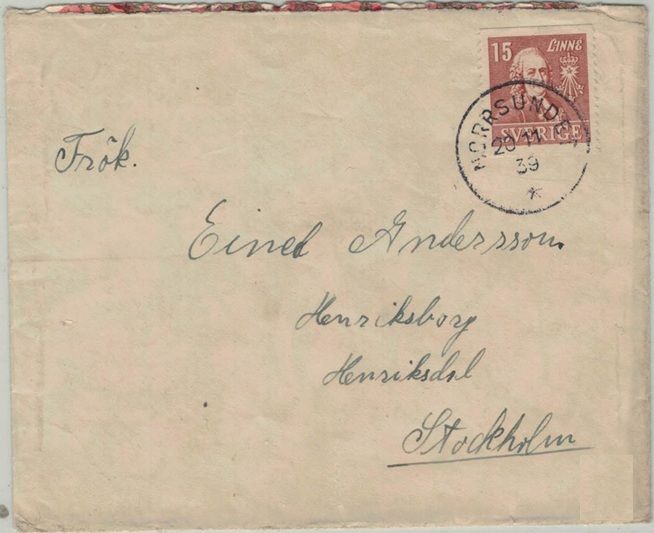 15 LINNÉ
SVERIGE
NORRSUNDET
20 11
39
Frök.
Andersson
Henriksborg
Henriksdal
Stockholm